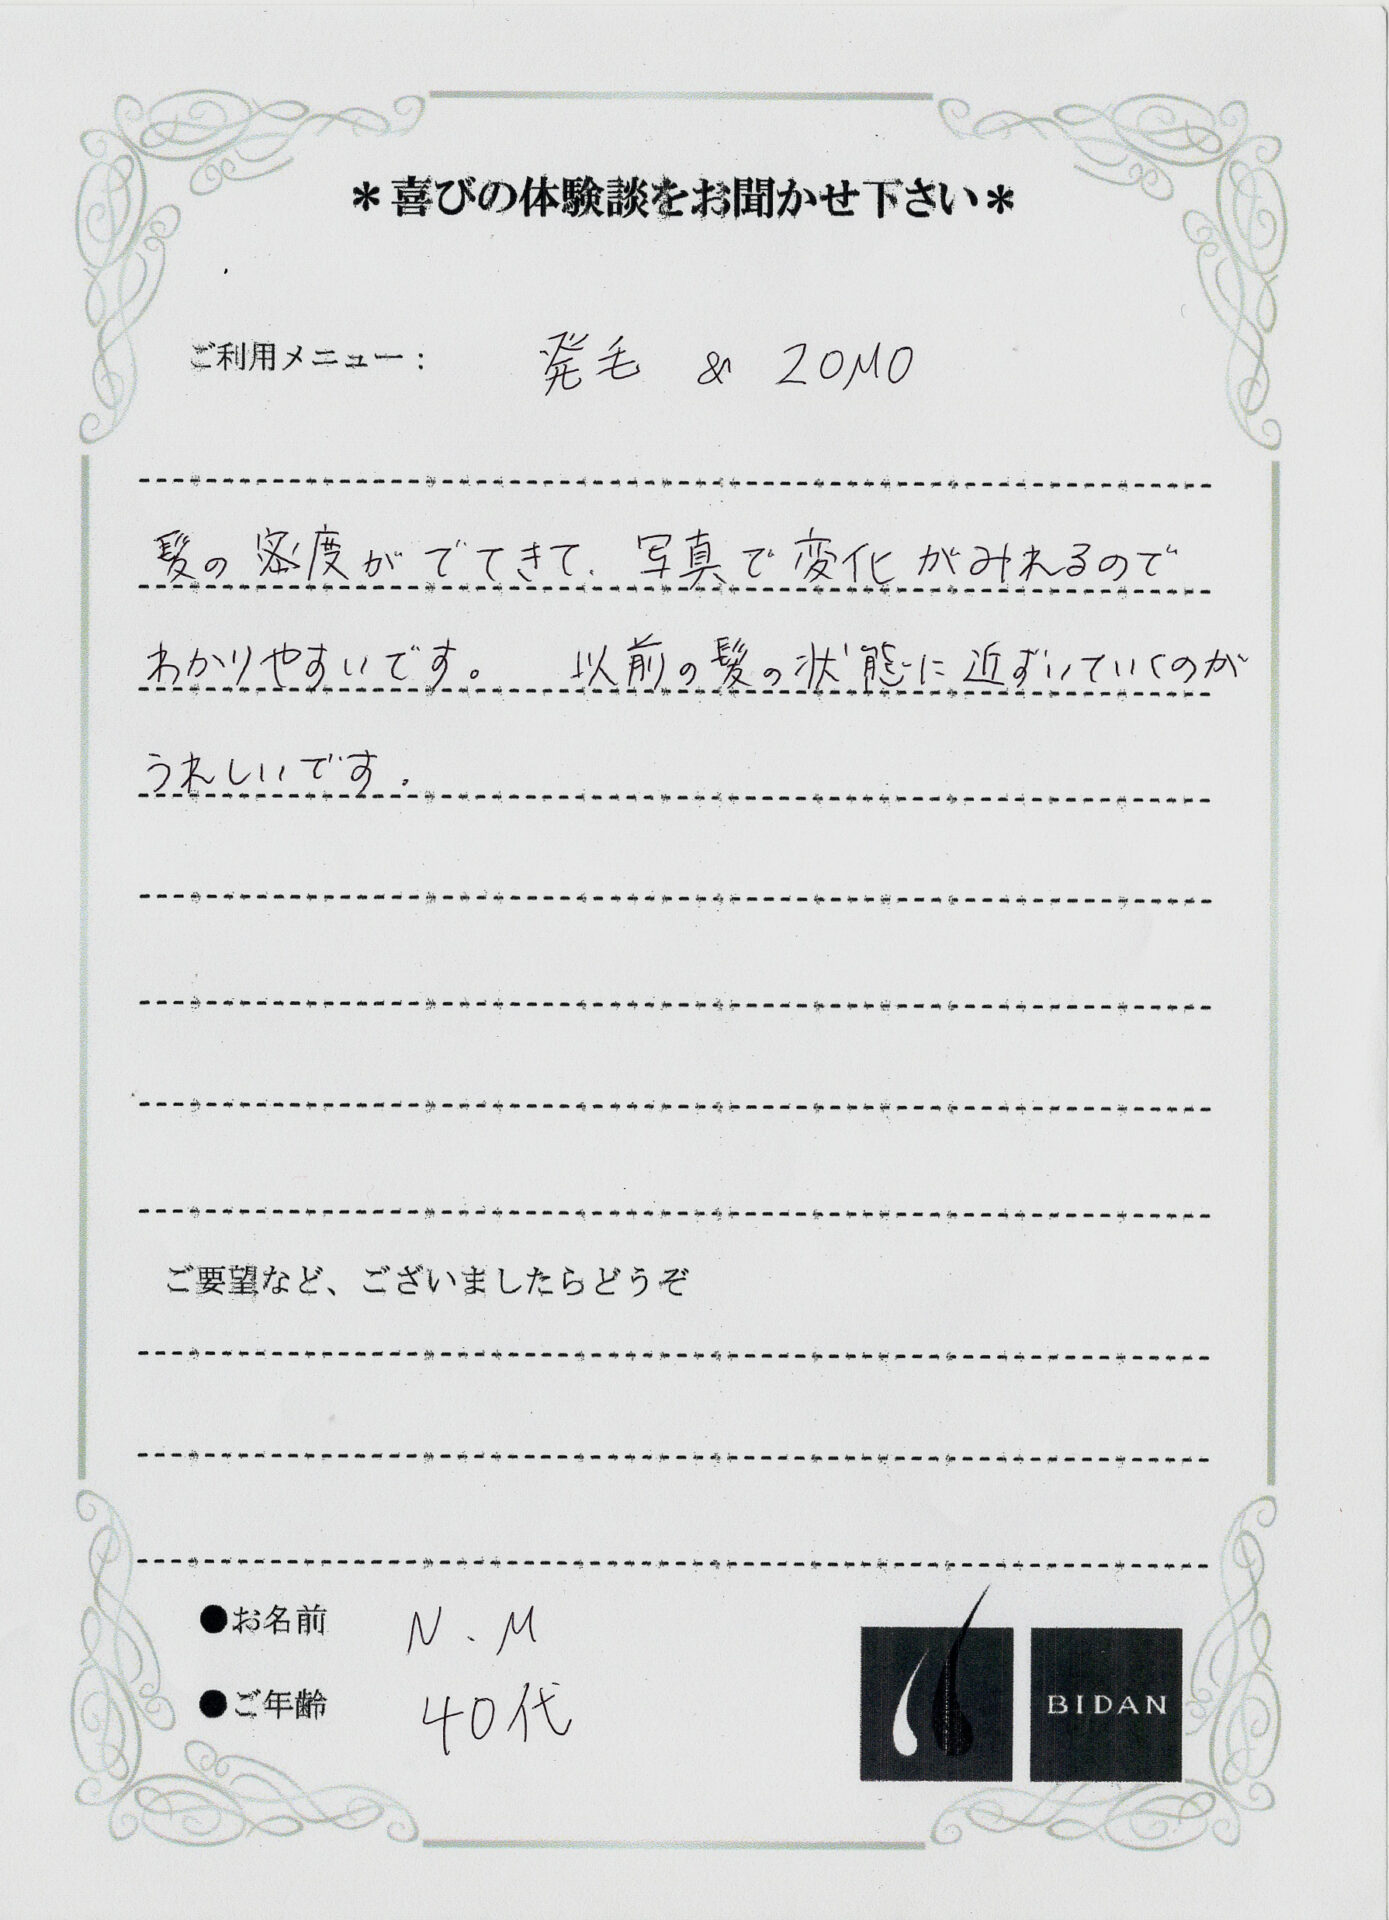 ＊喜びの体験談をお聞かせ下さい＊
ご利用メニュー： 発毛 & ZOMO
髪の密度がでてきて、写真で変化がみれるので
わかりやすいです。 以前の髪の状態に近ずいていくのが
うれしいです。
ご要望など、ございましたらどうぞ
●お名前 N.M
●ご年齢 40代
BIDAN